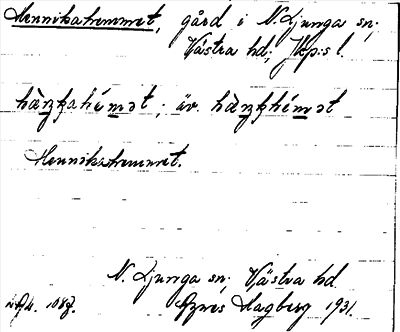 Hennikahemmet, gård i N. Ljunga sn;
Västra hd, Jkp:s l.
hàṉkahémət; äv. hàṉkhémət
Hennikahemmet.
N. Ljunga sn; Västra hd.
Agnes Hagberg 1931.